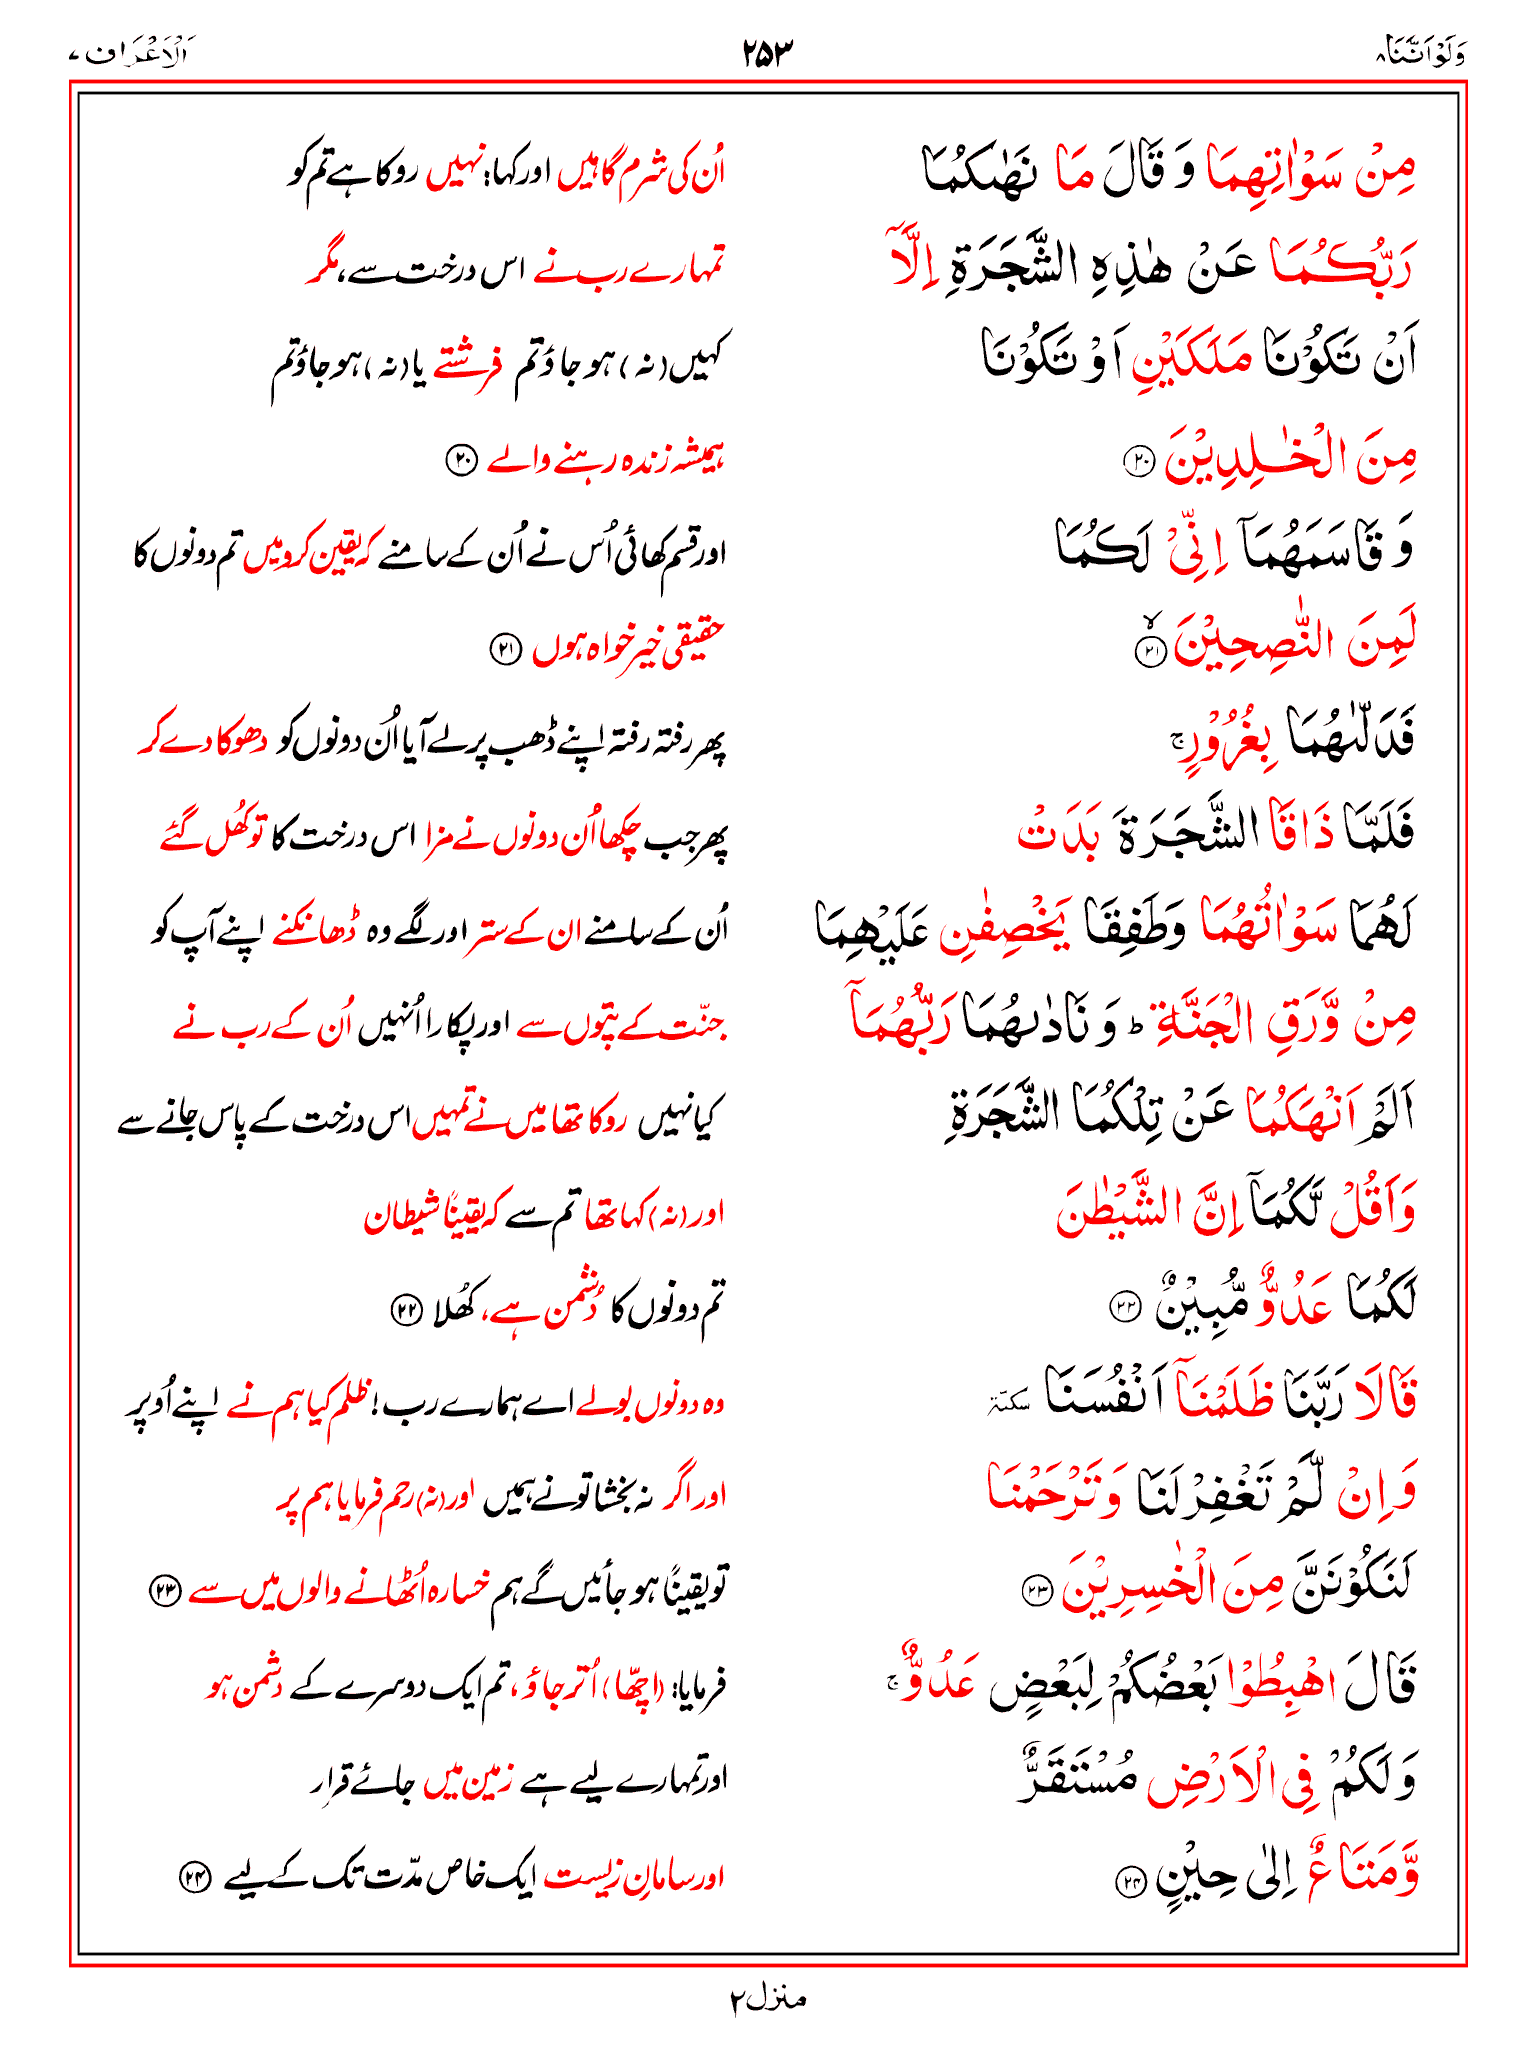 وَلَوْاَنَّنَا۸ ۲۵۳ اَلْاَعْرَاف۷
مِنْ سَوْاٰتِهِمَا وَ قَالَ مَا نَهٰىكُمَا اُن کی شرم گاہیں اور کہا: نہیں روکا ہے تم کو
رَبُّكُمَا عَنْ هٰذِهِ الشَّجَرَةِ اِلَّاۤ تمہارے رب نے اس درخت سے، مگر
اَنْ تَكُوْنَا مَلَكَيْنِ اَوْ تَكُوْنَا کہیں (نہ) ہو جاؤ تم فرشتے یا (نہ) ہو جاؤ تم
مِنَ الْخٰلِدِيْنَ ﴿۲۰﴾ ہمیشہ زندہ رہنے والے ﴿۲۰﴾
وَ قَاسَمَهُمَاۤ اِنِّيْ لَكُمَا اور قسم کھائی اُس نے اُن کے سامنے کہ یقین کرو میں تم دونوں کا
لَمِنَ النّٰصِحِيْنَ ﴿۲۱﴾ۙ حقیقی خیر خواہ ہوں ﴿۲۱﴾
فَدَلّٰىهُمَا بِغُرُوْرٍ ۚ پھر رفتہ رفتہ اپنے ڈھب پر لے آیا اُن دونوں کو دھوکا دے کر
فَلَمَّا ذَاقَا الشَّجَرَةَ بَدَتْ پھر جب چکھا اُن دونوں نے مزا اس درخت کا تو کھُل گئے
لَهُمَا سَوْاٰتُهُمَا وَطَفِقَا يَخْصِفٰنِ عَلَيْهِمَا اُن کے سامنے ان کے ستر اور لگے وہ ڈھانکنے اپنے آپ کو
مِنْ وَّرَقِ الْجَنَّةِ ؕ وَ نَادٰىهُمَا رَبُّهُمَاۤ جنّت کے پتّوں سے اور پکارا اُنہیں اُن کے رب نے
اَلَمْ اَنْهَكُمَا عَنْ تِلْكُمَا الشَّجَرَةِ کیا نہیں روکا تھا میں نے تمہیں اس درخت کے پاس جانے سے
وَاَقُلْ لَّكُمَاۤ اِنَّ الشَّيْطٰنَ اور (نہ) کہا تھا تم سے کہ یقیناً شیطان
لَكُمَا عَدُوٌّ مُّبِيْنٌ ﴿۲۲﴾ تم دونوں کا دُشمن ہے، کھُلا ﴿۲۲﴾
قَالَا رَبَّنَا ظَلَمْنَاۤ اَنْفُسَنَا سكتة وہ دونوں بولے اے ہمارے رب! ظلم کیا ہم نے اپنے اُوپر
وَاِنْ لَّمْ تَغْفِرْ لَنَا وَتَرْحَمْنَا اور اگر نہ بخشا تو نے ہمیں اور (نہ) رحم فرمایا ہم پر
لَنَكُوْنَنَّ مِنَ الْخٰسِرِيْنَ ﴿۲۳﴾ تو یقیناً ہو جائیں گے ہم خسارہ اُٹھانے والوں میں سے ﴿۲۳﴾
قَالَ اهْبِطُوْا بَعْضُكُمْ لِبَعْضٍ عَدُوٌّ ۚ فرمایا: (اچھّا)، اُتر جاؤ، تم ایک دوسرے کے دشمن ہو
وَلَكُمْ فِي الْاَرْضِ مُسْتَقَرٌّ اور تمہارے لیے ہے زمین میں جائے قرار
وَّمَتَاعٌ اِلٰى حِيْنٍ ﴿۲۴﴾ اور سامانِ زیست ایک خاص مدّت تک کے لیے ﴿۲۴﴾
منزل۲